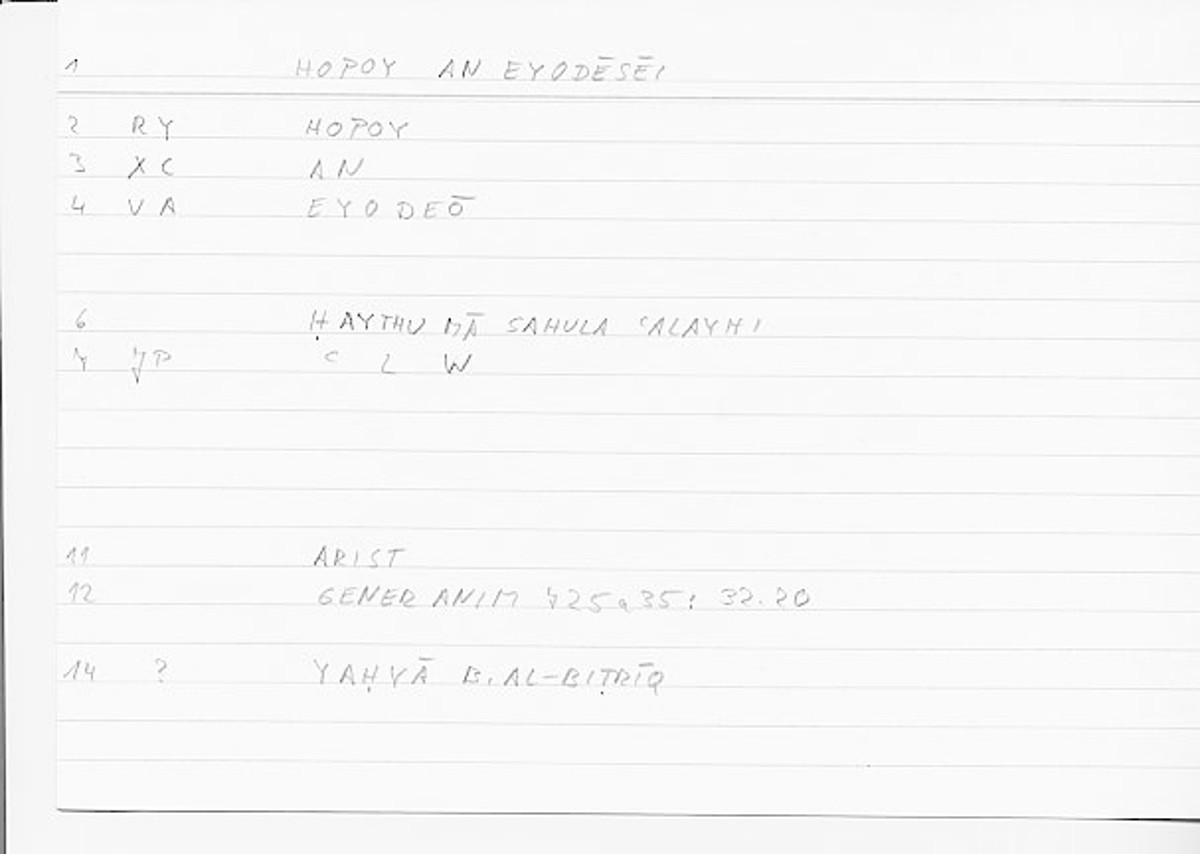 1 HOPOY AN EYODĒSĒI
2 RY HOPOY
3 XC AN
4 VA EYODEŌ
6 ḤAYTHU MĀ SAHULA ʿALAYHI
7 JP C L W
11 ARIST
12 GENER ANIM 725a35: 32.20
14 ? YAḤYĀ B. AL-BIṬRĪQ